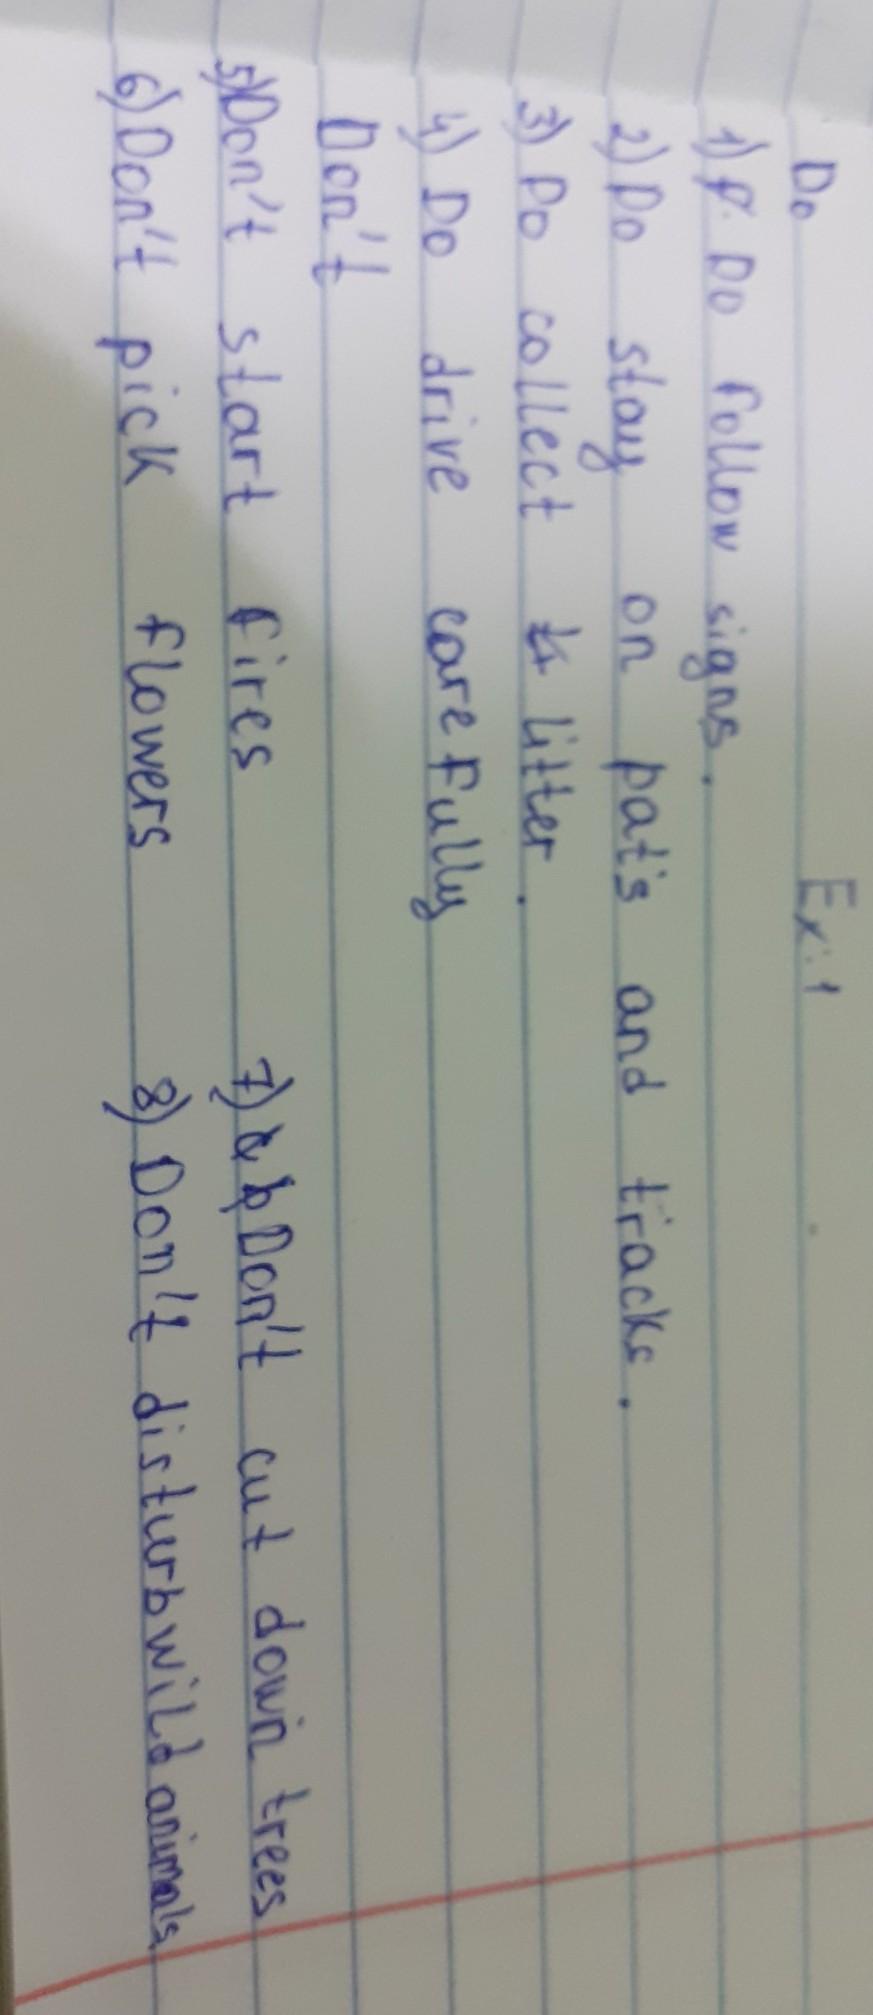 Ex. 1
Do
1) Do follow signs.
2) Do stay on pat's and tracks.
3) Do collect litter.
4) Do drive carefully
Don't
5) Don't start fires 7) Don't cut down trees
6) Don't pick flowers 8) Don't disturb wild animals